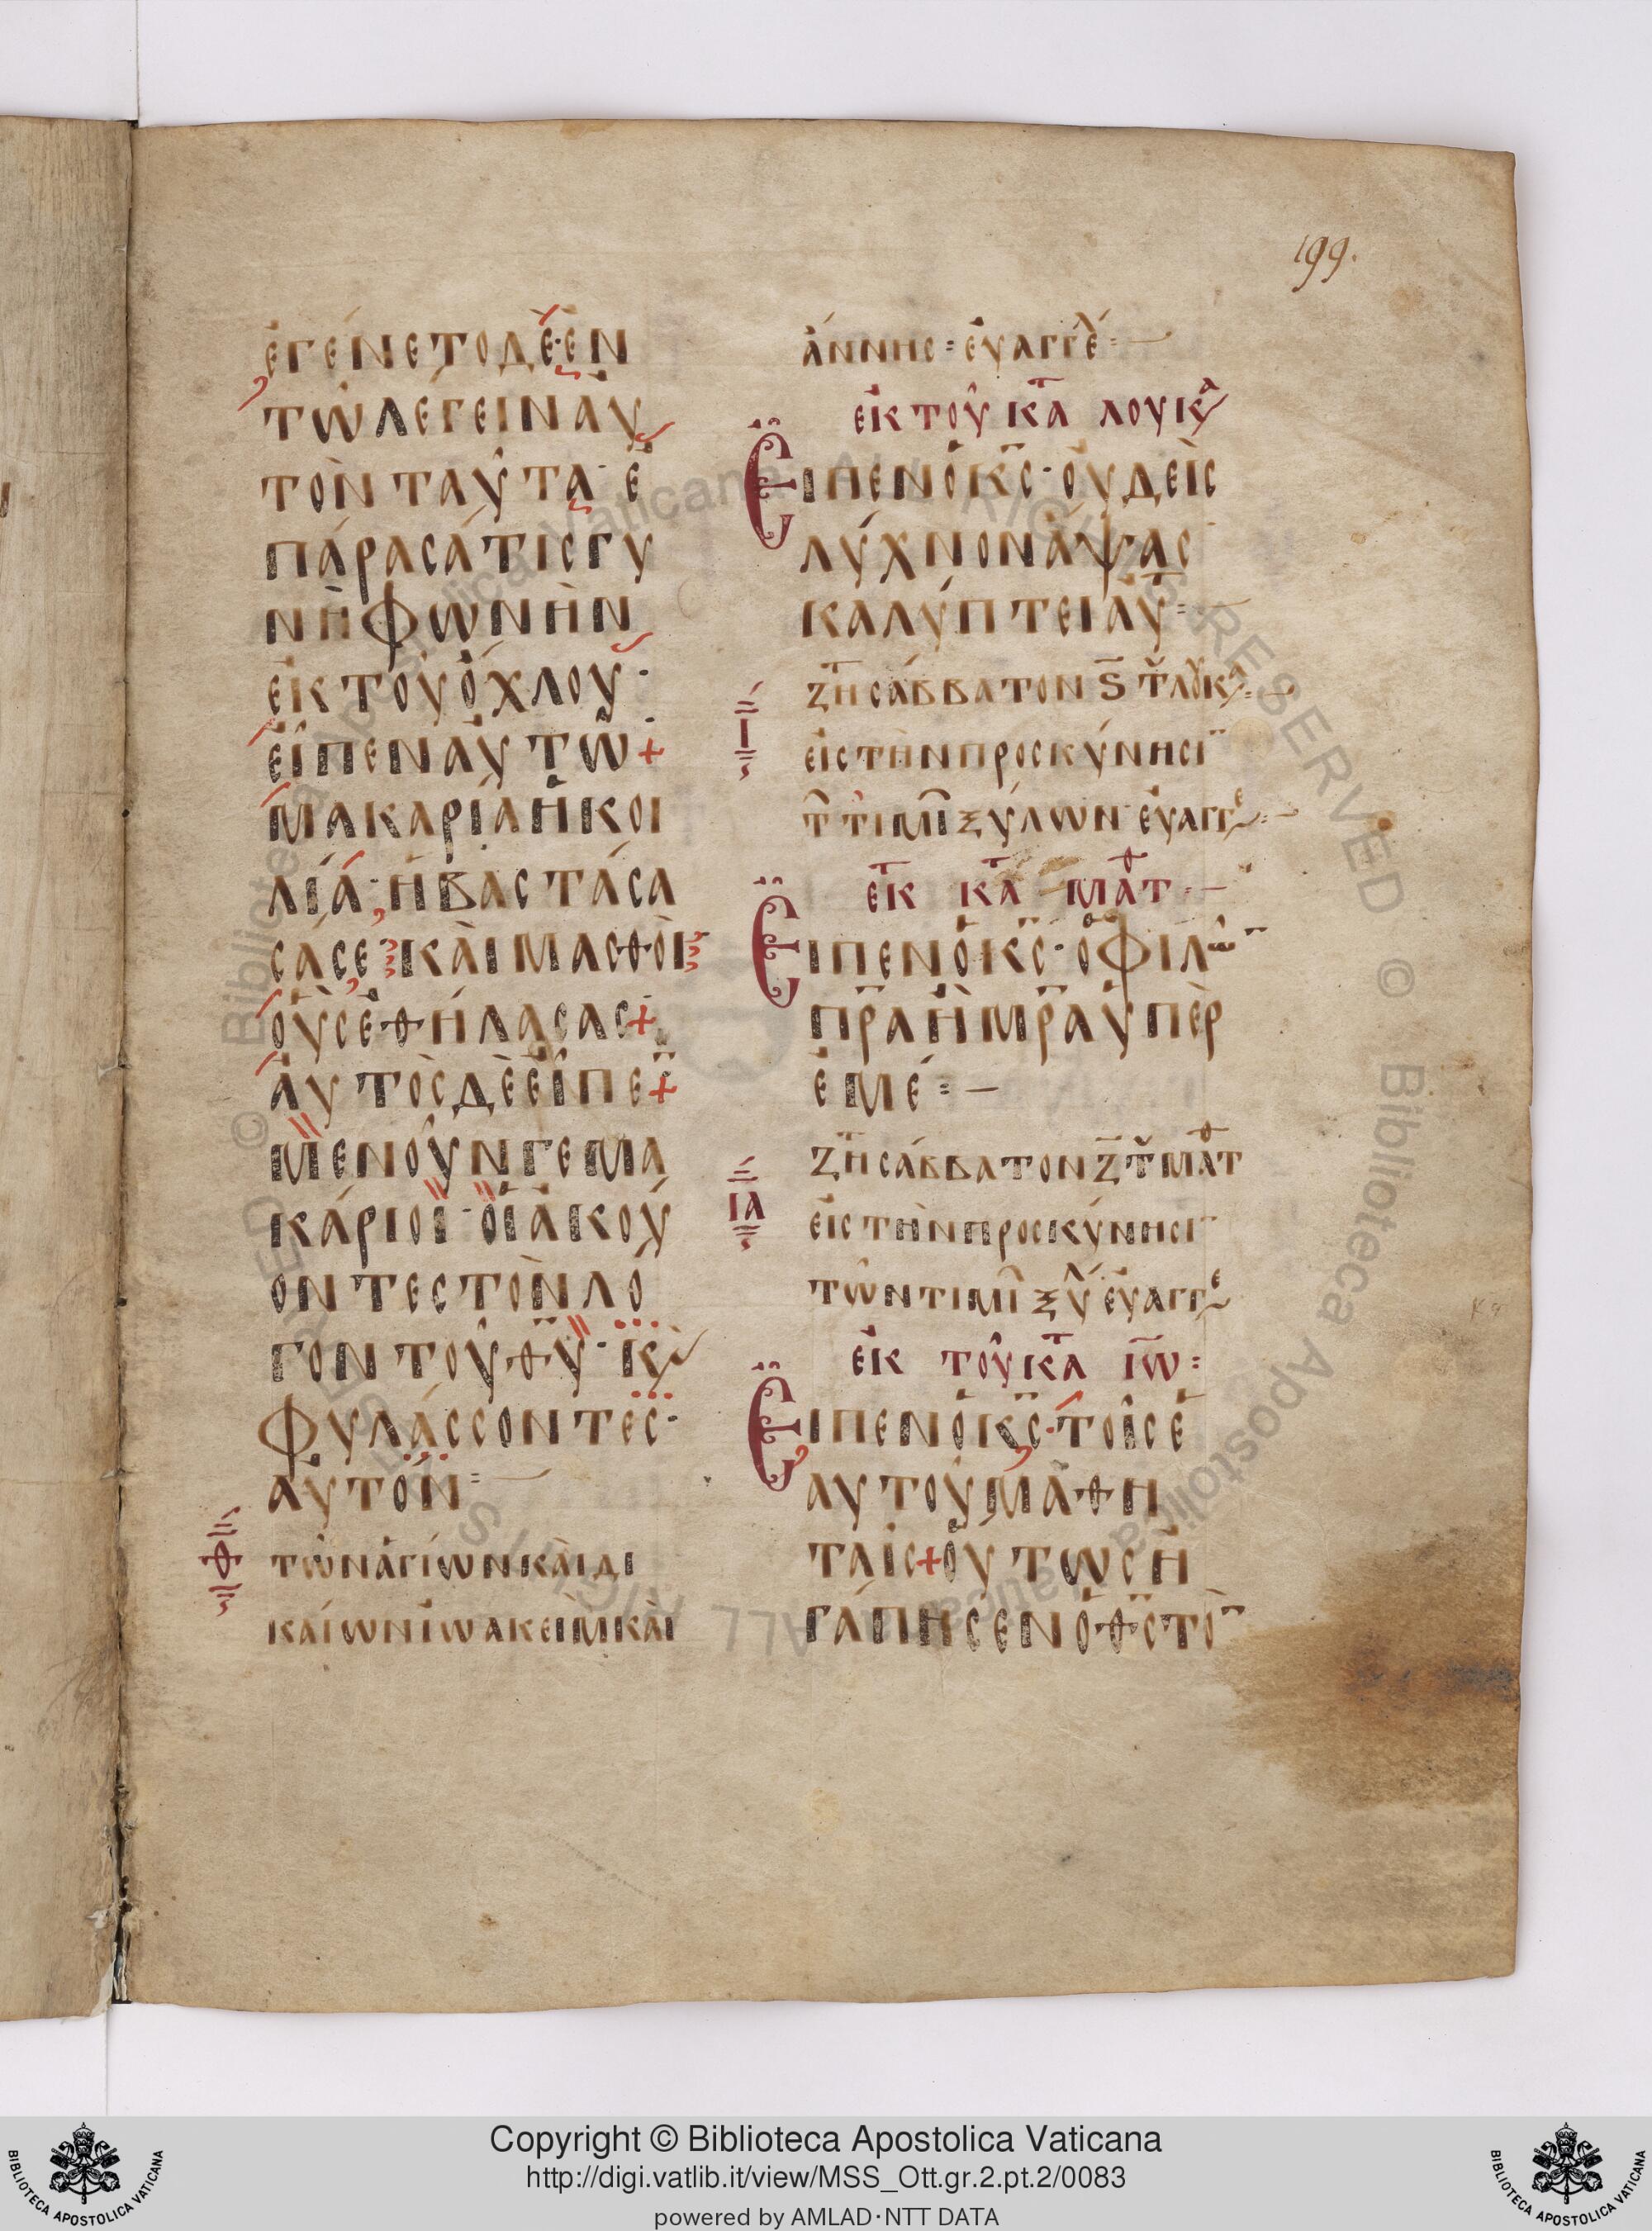 199.
ἐγένετο δὲ· ἐν
τῶ λέγειν αὐ
τὸν ταῦτα· ἐ
πάρασά τις γυ
νὴ φωνὴν
ἐκ τοῦ ὄχλου·
εἶπεν αὐτῶ +
μακαρία ἡ κοι
λία· ἡ βαστάσα
σά σε· καὶ μασθοὶ
οὓς ἐθήλασας +
αὐτὸς δὲ εἶπε +
μενοῦνγε μα
κάριοι· οἱ ἀκού
οντες τὸν λό
γον τοῦ θυ· κ
φυλάσσοντες·
αὐτόν
Θ
τῶν ἁγίων καὶ δι
καίων ἰωακεὶμ καὶ
ἄννης = εὐαγγέ
ἐκ τοῦ κατ λουκα
Εἶπεν ὁ κς· οὐδεὶς
λύχνον ἅψας
καλύπτει αὐτ
Ι
ζτη σάββατον ς τ λουκ
εἰς τὴν προσκύνησι
τ τιμι ξύλων· εὐαγγε
ἐκ κατ ματθ
Εἶπεν ὁ κς· ὁ φιλω
πρα ἢ μρα ὑπὲρ
ἐμέ = —
ΙΑ
ζτη σάββατον ζ τ ματθ
εἰς τὴν προσκύνησι
τῶν τιμι ξυλ εὐαγγε
ἐκ τοῦ κατ ιω =
Εἶπεν ὁ κς· τοῖς ἑ
αυτοῦ μαθη
ταῖς + οὕτως ἠ
γάπησεν ὁ θς τὸ
Copyright © Biblioteca Apostolica Vaticana
http://digi.vatlib.it/view/MSS_Ott.gr.2.pt.2/0083
powered by AMLAD·NTT DATA
BIBLIOTECA APOSTOLICA VATICANA
BIBLIOTECA APOSTOLICA VATICANA